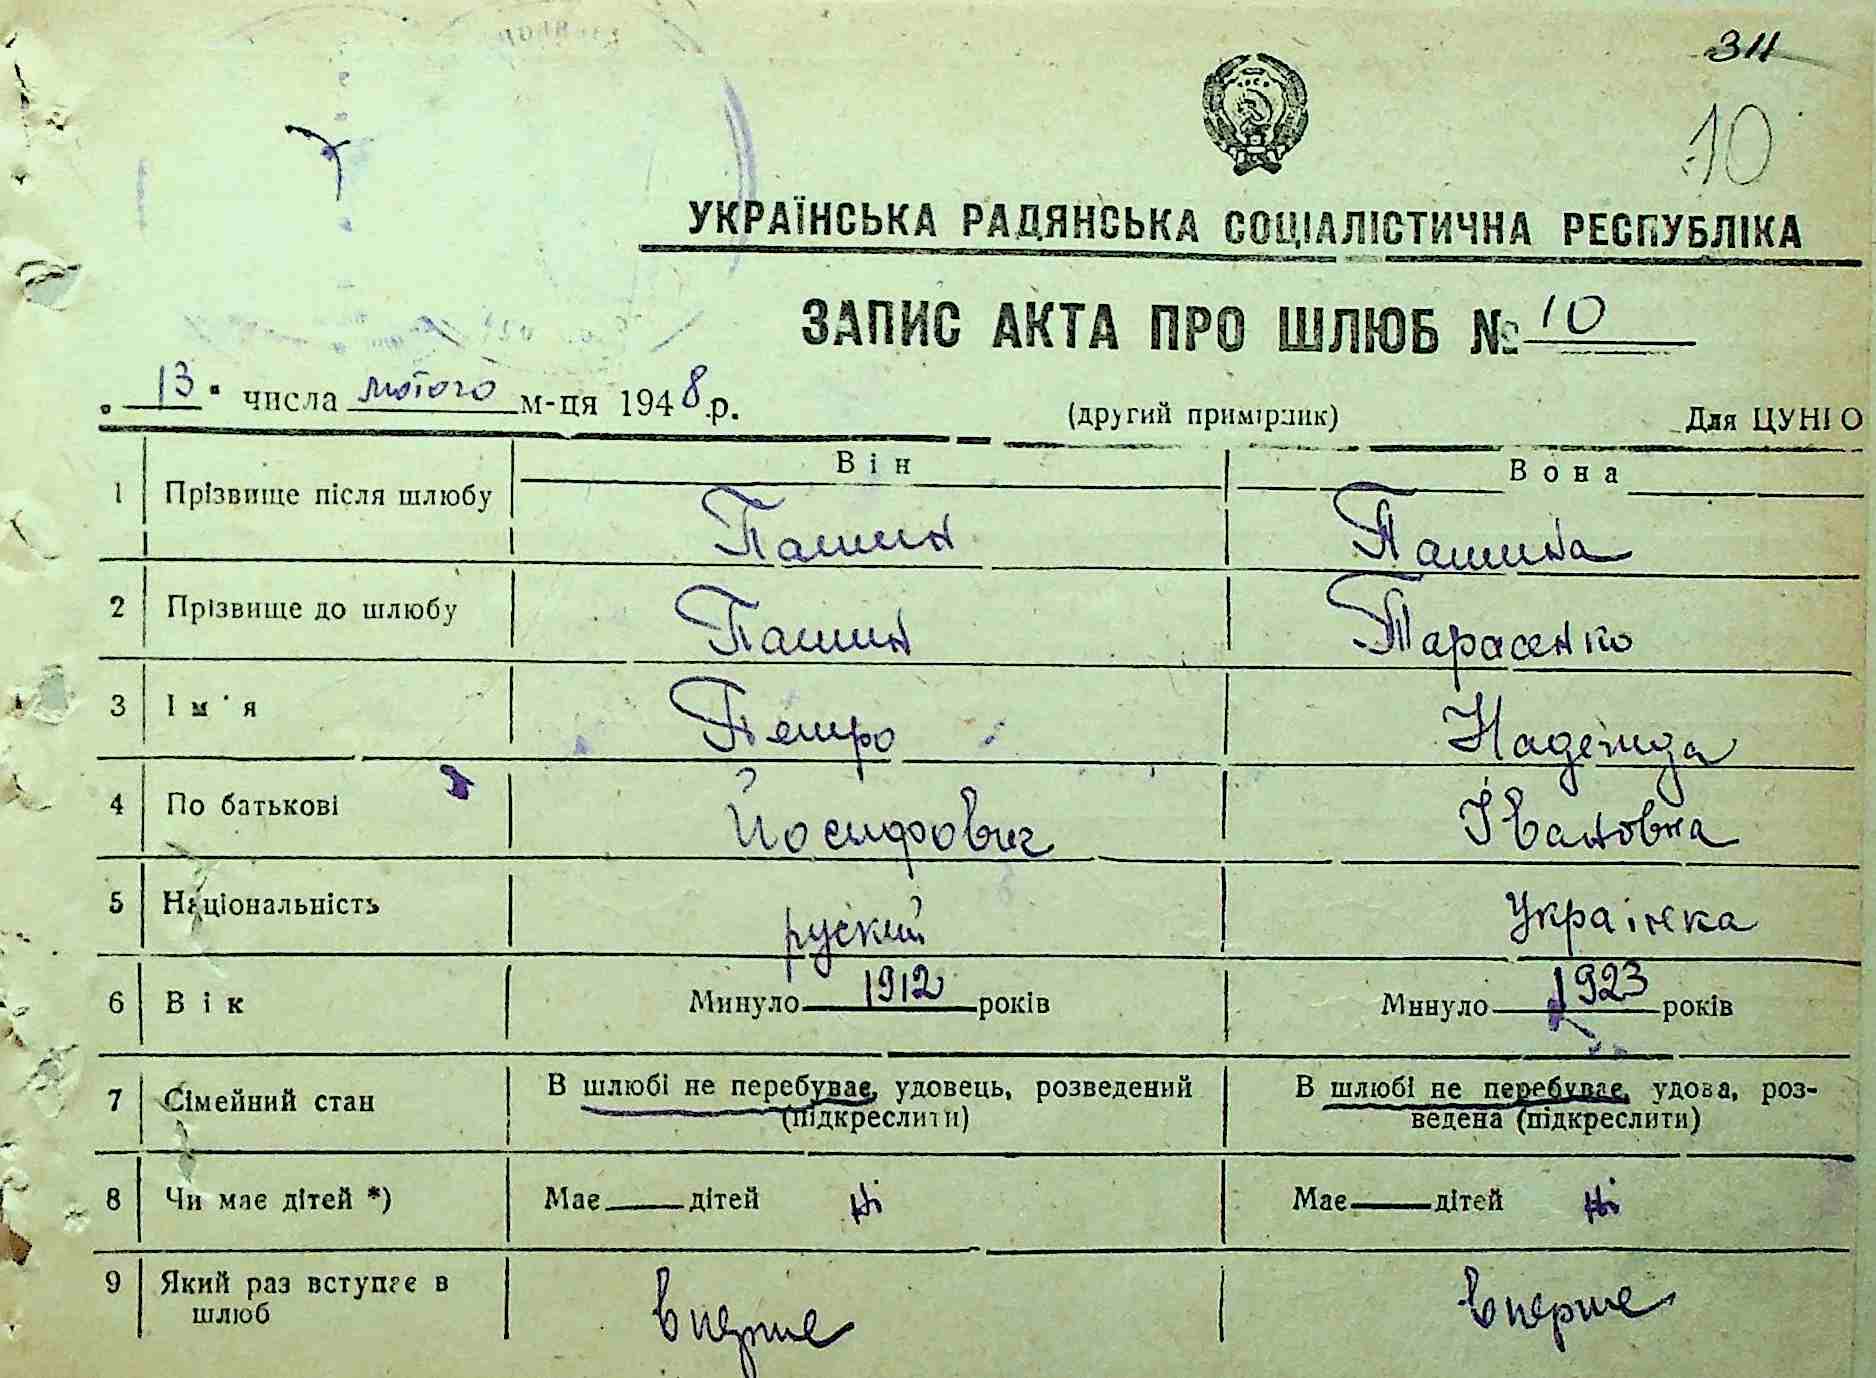 311
10
УКРАЇНСЬКА РАДЯНСЬКА СОЦІАЛІСТИЧНА РЕСПУБЛІКА
ЗАПИС АКТА ПРО ШЛЮБ № 10
„13" числа лютого м-ця 1948 р. (другий примірник) Для ЦУНГО
Він Вона
1 Прізвище після шлюбу Пашин Пашина
2 Прізвище до шлюбу Пашин Тарасенко
3 Ім'я Петро Надежда
4 По батькові Йосифович Івановна
5 Національність руский Українка
6 Вік Минуло 1912 років Минуло 1923 років
7 Сімейний стан В шлюбі не перебуває, удовець, розведений В шлюбі не перебуває, удова, роз-
(підкреслити) ведена (підкреслити)
8 Чи має дітей *) Має — дітей ні Має — дітей ні
9 Який раз вступає в вперше вперше
шлюб